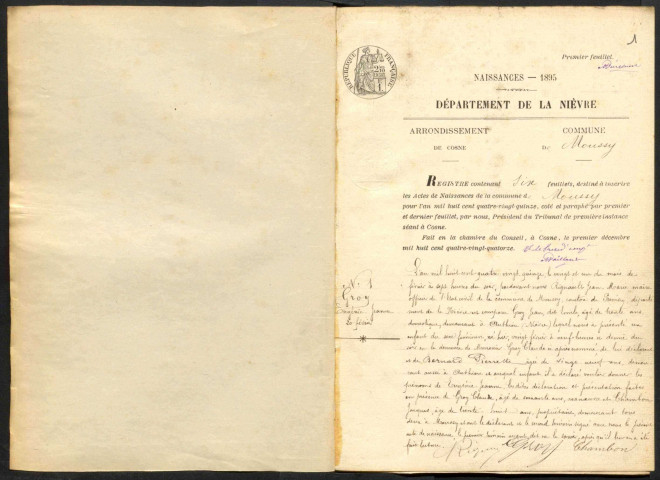 1
Premier feuillet.
RÉPUBLIQUE FRANÇAISE
NAISSANCES — 1895
DÉPARTEMENT DE LA NIÈVRE
ARRONDISSEMENT COMMUNE
DE COSNE DE Moussy
REGISTRE contenant Six feuillets, destiné à inscrire
les Actes de Naissances de la commune de Moussy
pour l'an mil huit cent quatre-vingt quinze, coté et paraphé par premier
et dernier feuillet, par nous, Président du Tribunal de première instance
séant à Cosne.
Fait en la chambre du Conseil, à Cosne, le premier décembre
mil huit cent quatre-vingt-quatorze.
N° 1
Groy
Jeanne
L'an mil huit cent quatre vingt quinze, le vingt et un du mois de
février à sept heures du soir, pardevant nous Regnault Jean Marie maire
officier de l'État civil de la commune de Moussy, canton de Prémery, départe
ment de la Nièvre est comparu Groy Jean, âgé de trente ans
domestique, demeurant à Authiou (Nièvre) lequel nous a présenté un
enfant du sexe féminin, né hier, vingt février à neuf heures et demie du
soir en la demeure de Monsieur Groy Claude de lui déclarant
et de Bernard Pierrette âgée de vingt neuf ans, demeu
rant aussi à Authiou et auquel enfant il a déclaré vouloir donner les
prénoms de Jeanne, lesdites déclaration et présentation faites
en présence de Groy Claude, âgé de soixante ans, et Chambon
Jacques, âgé de trente huit ans, propriétaire, demeurant tous
deux à Moussy et ont le déclarant et le second témoin signé avec nous le présent
acte de naissance, le premier témoin ayant dit ne le savoir, après qu'il leur en a été
fait lecture.
Groy Chambon